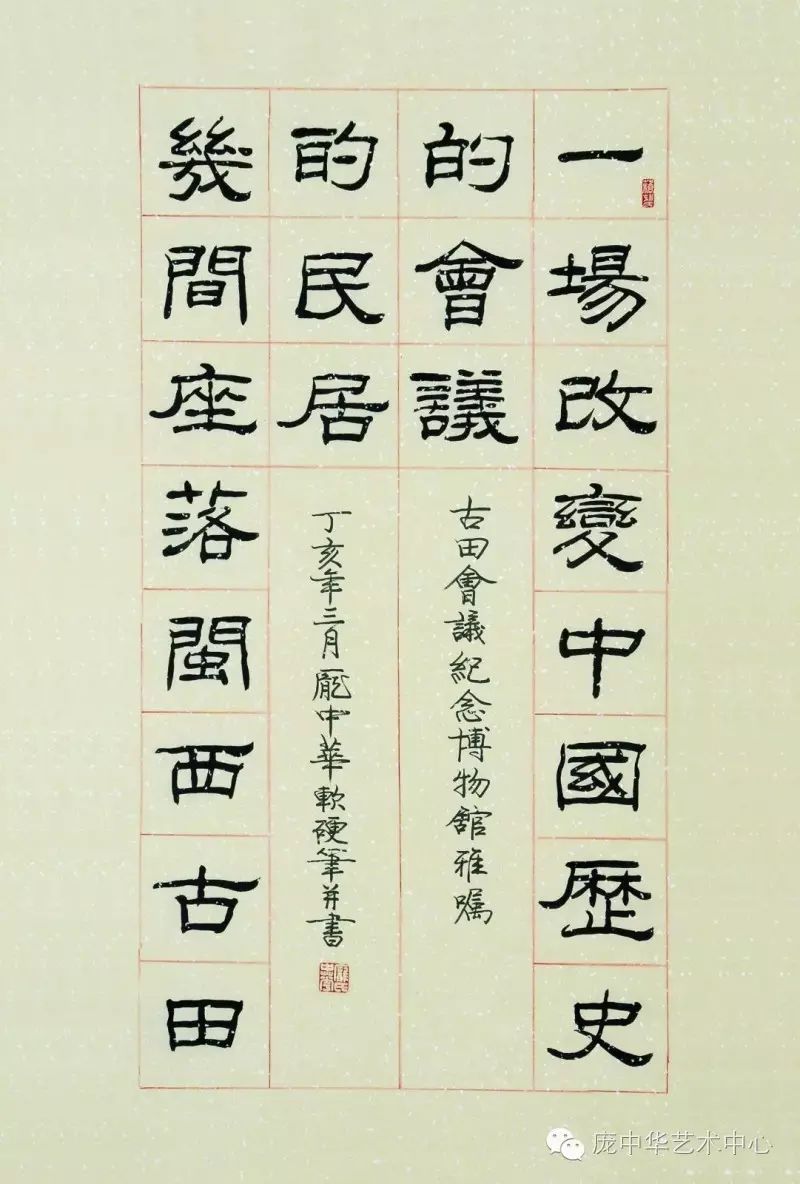 一場改變中國歷史
的會議
古田會議紀念博物舘雅嘱
幾間座落閩西古田
的民居
丁亥年三月龐中華軟硬筆并書
庞中华艺术中心